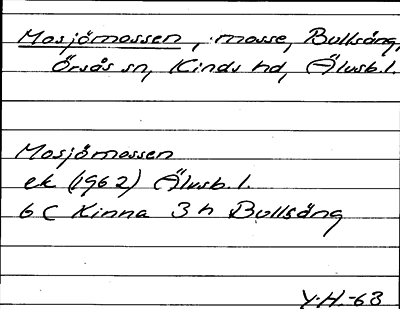 Mosjömossen, mosse, Bullsäng,
Örsås sn, Kinds hd, Älvsb.l.
Mosjömossen
ek (1962) Älvsb.l.
6C Kinna 3h Bullsäng
Y.H.-63